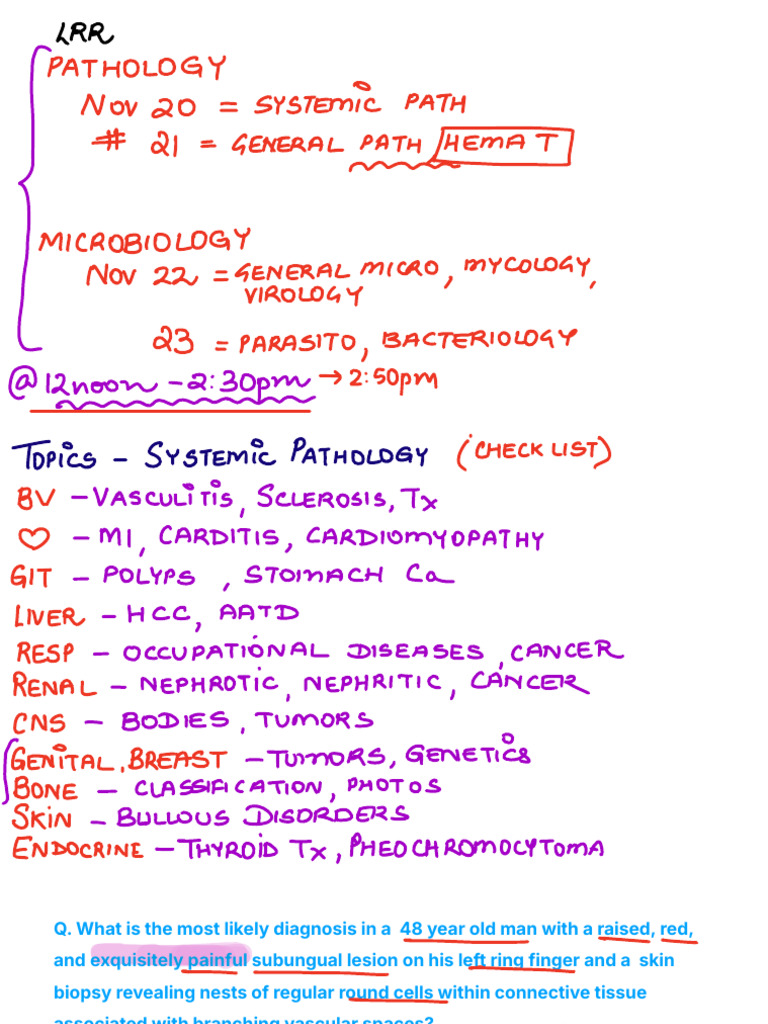 LRR
PATHOLOGY
NOV 20 = SYSTEMIC PATH
# 21 = GENERAL PATH HEMAT
MICROBIOLOGY
NOV 22 = GENERAL MICRO, MYCOLOGY,
VIROLOGY
23 = PARASITO, BACTERIOLOGY
@ 12noon - 2:30pm → 2:50pm
TOPICS - SYSTEMIC PATHOLOGY (CHECK LIST)
BV - VASCULITIS, SCLEROSIS, Tx
♡ - MI, CARDITIS, CARDIOMYOPATHY
GIT - POLYPS, STOMACH Ca
LIVER - HCC, AATD
RESP - OCCUPATIONAL DISEASES, CANCER
RENAL - NEPHROTIC, NEPHRITIC, CANCER
CNS - BODIES, TUMORS
GENITAL, BREAST - TUMORS, GENETICS
BONE - CLASSIFICATION, PHOTOS
SKIN - BULLOUS DISORDERS
ENDOCRINE - THYROID Tx, PHEOCHROMOCYTOMA
Q. What is the most likely diagnosis in a 48 year old man with a raised, red,
and exquisitely painful subungual lesion on his left ring finger and a skin
biopsy revealing nests of regular round cells within connective tissue
associated with branching vascular spaces?